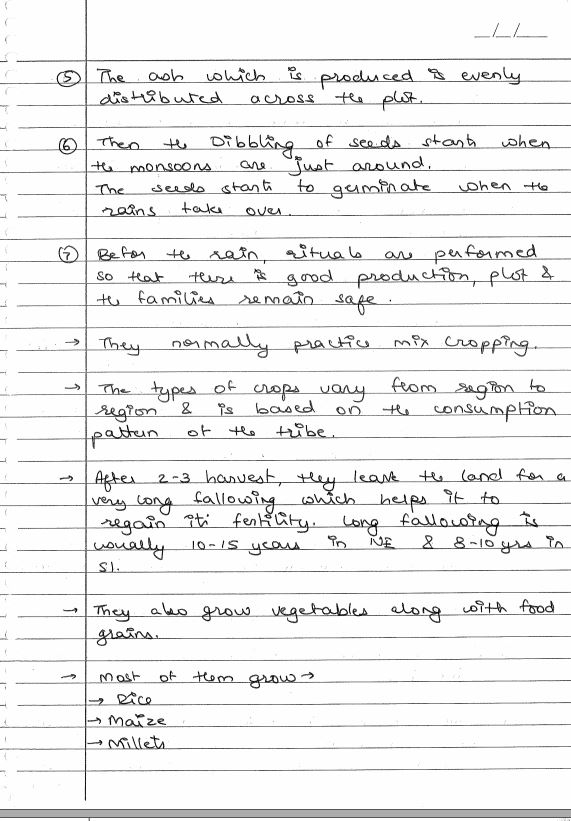 __/__/__
⑤ The ash which is produced is evenly
distributed across the plot.
⑥ Then the Dibbling of seeds starts when
the monsoons are just around.
The seeds starts to germinate when the
rains take over.
⑦ Before the rain, rituals are performed
so that there is good production, plot &
the families remain safe.
→ They normally practice mix cropping.
→ The types of crops vary from region to
region & is based on the consumption
pattern of the tribe.
→ After 2-3 harvest, they leave the land for a
very long fallowing which helps it to
regain its fertility. Long fallowing is
usually 10-15 years in NE & 8-10 yrs in
SI.
→ They also grow vegetables along with food
grains.
→ Most of them grow →
→ Rice
→ Maize
→ Millets